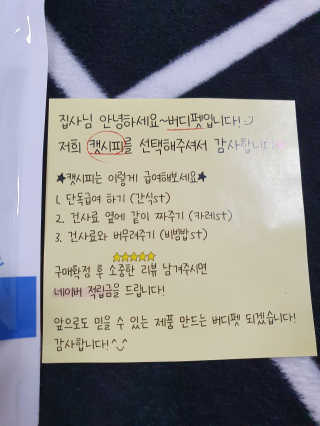 집사님 안녕하세요~버디펫입니다!
저희 캣시피를 선택해주셔서 감사합니다
★캣시피는 이렇게 급여해보세요★
1. 단독급여 하기 (간식st)
2. 건사료 옆에 같이 짜주기 (카레st)
3. 건사료와 버무려주기 (비빔밥st)
★★★★★
구매확정 후 소중한 리뷰 남겨주시면
네이버 적립금을 드립니다!
앞으로도 믿을 수 있는 제품 만드는 버디펫 되겠습니다!
감사합니다! ^_^